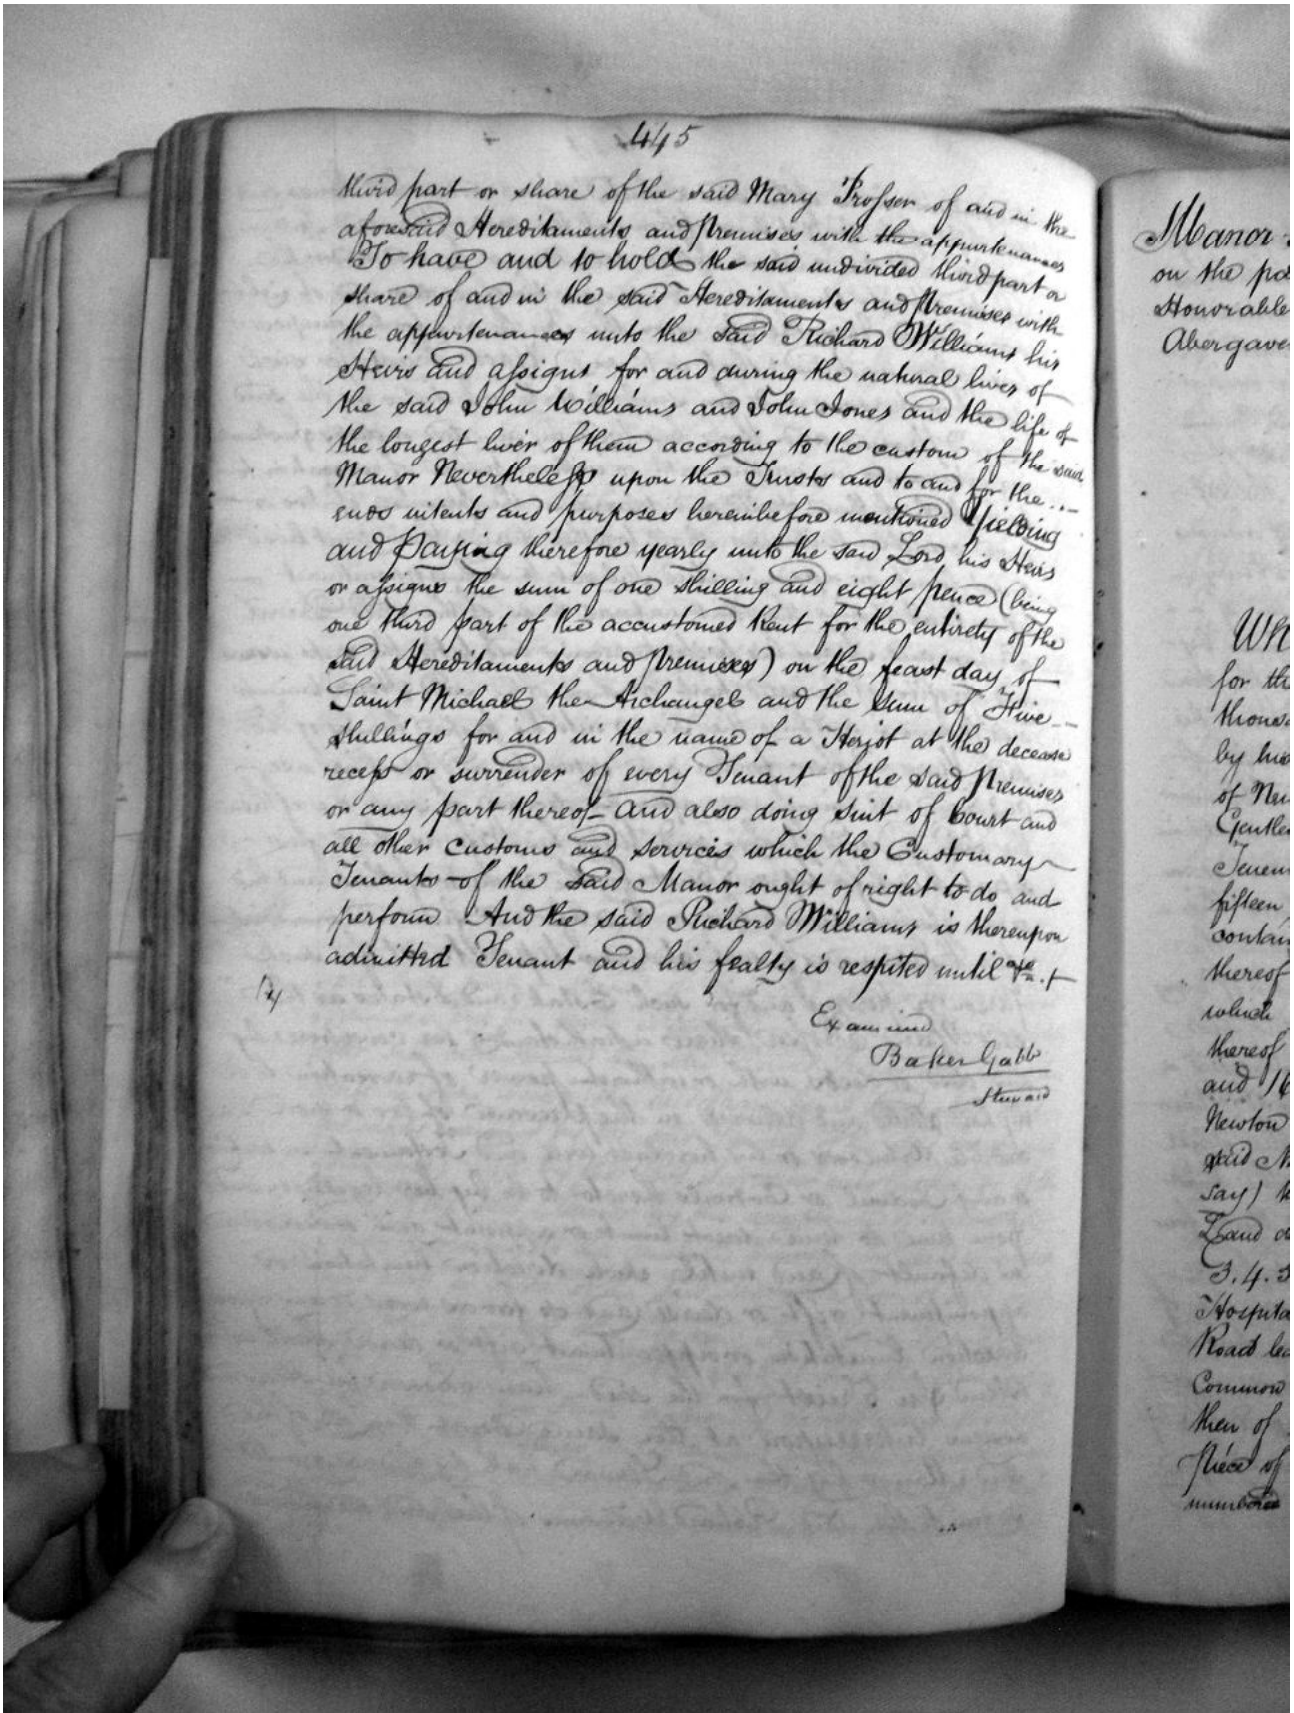 445
third part or share of the said Mary Prosser of and in the
aforesaid Hereditaments and premises with the appurtenances
To have and to hold the said undivided third part or
share of and in the said Hereditaments and premises with
the appurtenances unto the said Richard Williams his
Heirs and assigns for and during the natural lives of
the said John Williams and John Jones and the life of
the longest liver of them according to the custom of the said
Manor Nevertheless upon the Trusts and to and for the
ends intents and purposes hereinbefore mentioned Yielding
and Paying therefore yearly unto the said Lord his Heirs
or assigns the sum of one shilling and eight pence (being
one third part of the accustomed Rent for the entirety of the
said Hereditaments and premises) on the feast day of
Saint Michael the Archangel and the sum of Five
shillings for and in the name of a Heriot at the decease
recess or surrender of every Tenant of the said premises
or any part thereof and also doing suit of Court and
all other customs and services which the Customary
Tenants of the said Manor ought of right to do and
perform And the said Richard Williams is thereupon
admitted Tenant and his fealty is respited until &c.
Examined
Baker Gabb
Steward
Manor
on the
Honorable
for
by his
of
fifteen
thereof
which
thereof
and 16
Newton
said
say)
Land
3.4.5
Road
Common
then of
piece of
numbered